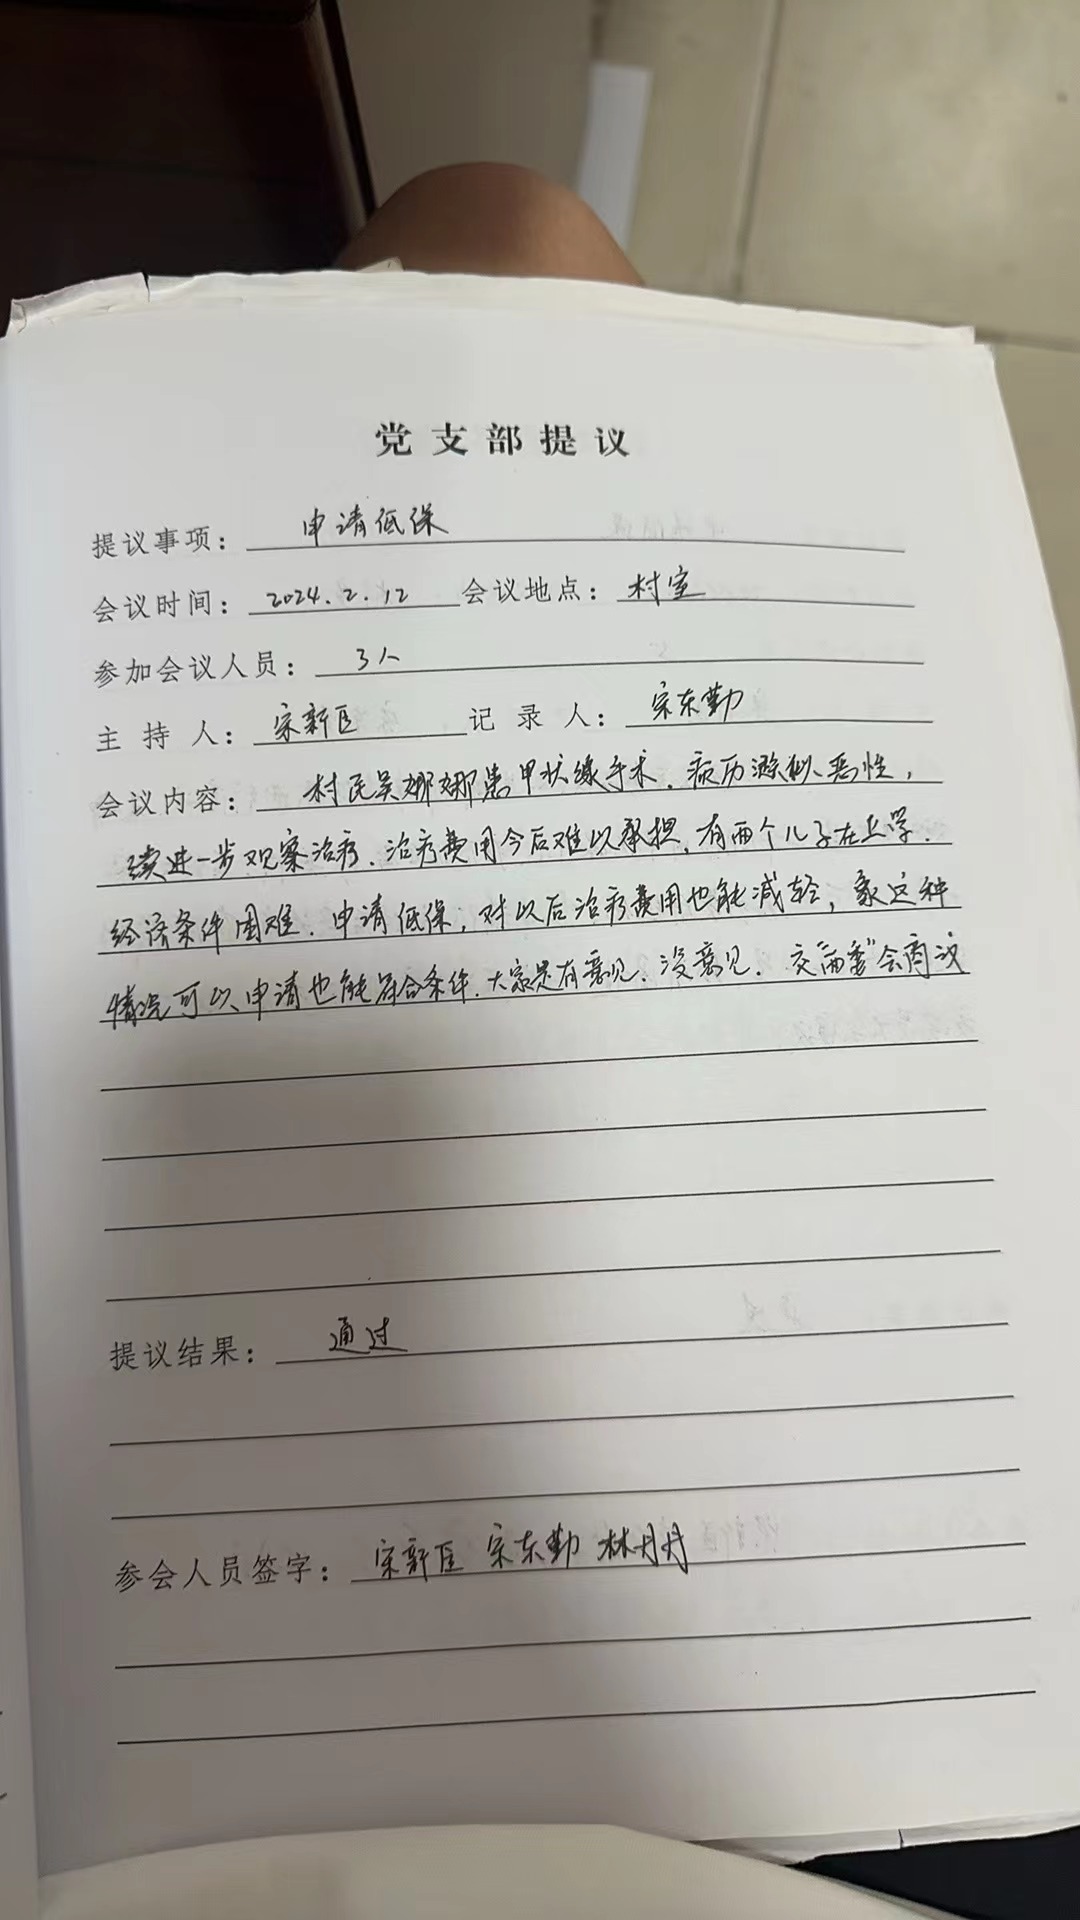 党支部提议
提议事项： 申请低保
会议时间： 2024.2.12 会议地点： 村室
参加会议人员： 3人
主持人： 宋新臣 记录人： 宋东勤
会议内容： 村民吴娜娜患甲状缐手术，病历 似恶性，
续进一步观察治疗．治疗费用今后难以承担，有两个儿子在上学．
经济条件困难．申请低保，对以后治疗费用也能减轻，象这种
情况可以申请也能符合条件．大家是有意见．没意见．交“两委”会商议
提议结果： 通过
参会人员签字： 宋新臣 宋东勤 林丹丹